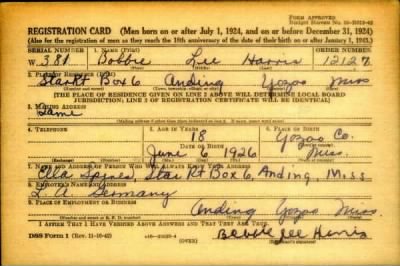 FORM APPROVED
REGISTRATION CARD—(Men born on or after July 1, 1924, and on or before December 31, 1924)
(Also for the registration of men as they reach the 18th anniversary of the date of their birth on or after January 1, 1925.)
SERIAL NUMBER 1. NAME (Print) ORDER NUMBER
W 381 Bobbie Lee Harris 12127
2. PLACE OF RESIDENCE (Print)
Star Rt Box 6 Anding Yazoo Miss
[THE PLACE OF RESIDENCE GIVEN ON LINE 2 ABOVE WILL DETERMINE LOCAL BOARD
JURISDICTION; LINE 2 OF REGISTRATION CERTIFICATE WILL BE IDENTICAL]
3. MAILING ADDRESS
Same
4. TELEPHONE 5. AGE IN YEARS 6. PLACE OF BIRTH
18 Yazoo Co.
DATE OF BIRTH
June 6 1926 Miss.
7. NAME AND ADDRESS OF PERSON WHO WILL ALWAYS KNOW YOUR ADDRESS
Ella Spires, Star Rt Box 6, Anding, Miss
8. EMPLOYER'S NAME AND ADDRESS
L. A. Germany
9. PLACE OF EMPLOYMENT OR BUSINESS
Anding Yazoo Miss.
I AFFIRM THAT I HAVE VERIFIED ABOVE ANSWERS AND THAT THEY ARE TRUE.
DSS Form 1 (Rev. 11-16-42) (OVER) Bobbie Lee Harris